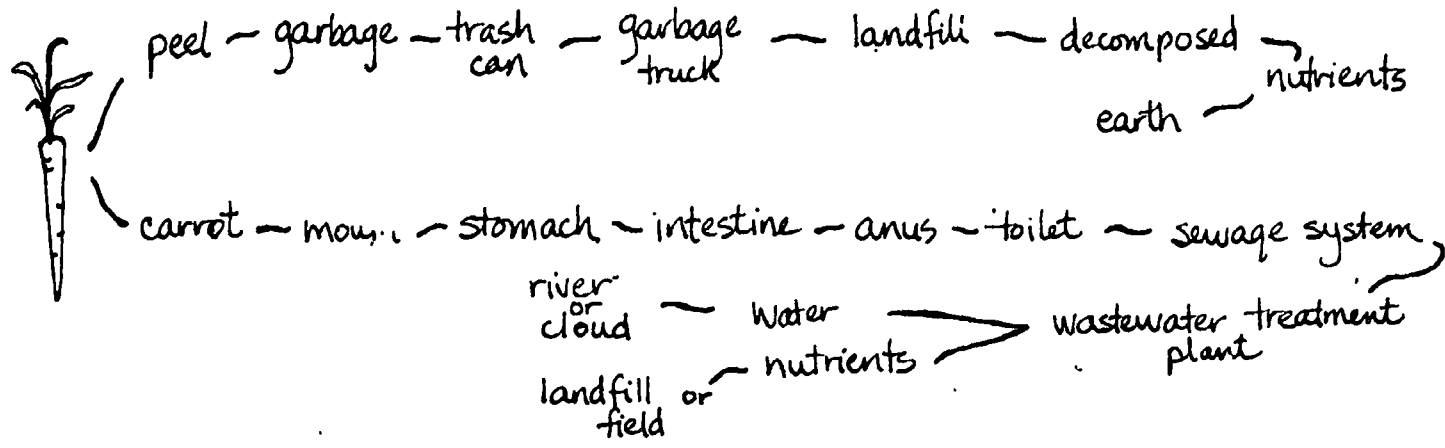 peel – garbage – trash can – garbage truck – landfill – decomposed – nutrients
earth
carrot – – stomach – intestine – anus – toilet – sewage system
wastewater treatment plant
water – river or cloud
nutrients – landfill or field